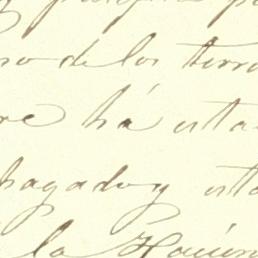 de los terr
re há esta
pagado y esta
la Hacien